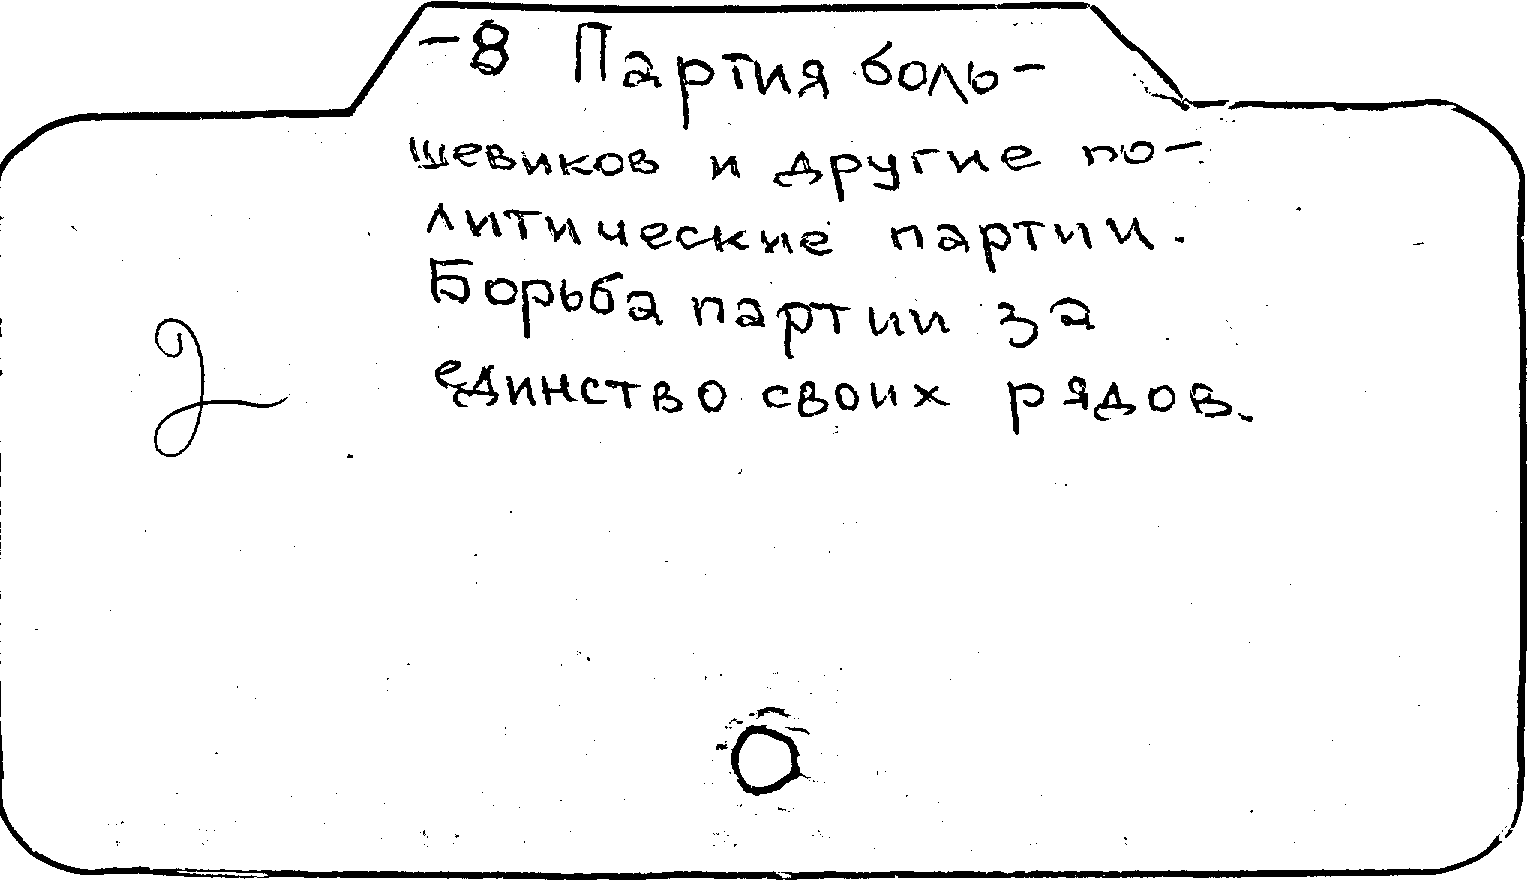 -8 Партия боль-
шевиков и другие по-
литические партии.
Борьба партии за
единство своих рядов.
2